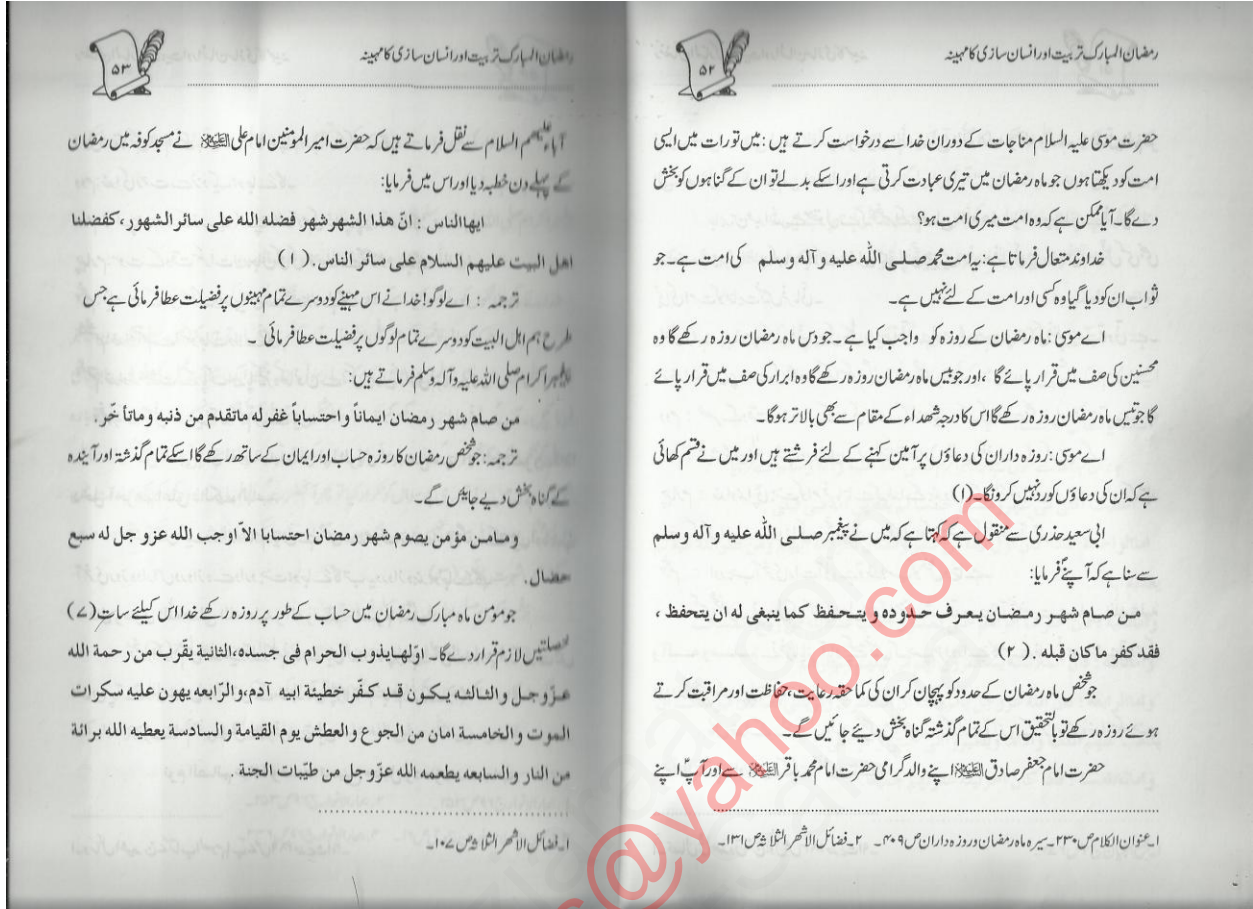 رمضان المبارک تربیت اور انسان سازی کا مہینہ
۵۲
حضرت موسی علیہ السلام مناجات کے دوران خدا سے درخواست کرتے ہیں : میں تورات میں ایسی
امت کو دیکھتا ہوں جو ماہ رمضان میں تیری عبادت کرتی ہے اور اسکے بدلے تو ان کے گناہوں کو بخش
دے گا۔ آیا ممکن ہے کہ وہ امت میری امت ہو؟
خداوند متعال فرماتا ہے: یہ امت محمد صلی اللہ علیہ و آلہ وسلم کی امت ہے۔ جو
ثواب ان کو دیا گیا وہ کسی اور امت کے لئے نہیں ہے۔
اے موسی : ماہ رمضان کے روزہ کو واجب کیا ہے ۔ جو دس ماہ رمضان روزہ رکھے گا وہ
محسنین کی صف میں قرار پائے گا ، اور جو بیس ماہ رمضان روزہ رکھے گا وہ ابرار کی صف میں قرار پائے
گا جو تیس ماہ رمضان روزہ رکھے گا اس کا درجہ شھداء کے مقام سے بھی بالاتر ہوگا۔
اے موسی : روزہ داران کی دعاؤں پر آمین کہنے کے لئے فرشتے ہیں اور میں نے قسم کھائی
ہے کہ ان کی دعاؤں کو رد نہیں کرونگا۔ (۱)
ابی سعید حذری سے منقول ہے کہ کہتا ہے کہ میں نے پیغمبر صلی اللہ علیہ و آلہ وسلم
سے سنا ہے کہ آپؐ نے فرمایا:
من صام شهر رمضان یعرف حدوده و یتحفظ کما ینبغی له ان یتحفظ ،
فقد کفر ما کان قبله . ( ۲ )
جو شخص ماہ رمضان کے حدود کو پہچان کر ان کی کما حقہ رعایت، حفاظت اور مراقبت کرتے
ہوئے روزہ رکھے تو بالتحقیق اس کے تمام گذشتہ گناہ بخش دیئے جائیں گے۔
حضرت امام جعفر صادق علیہ السلام اپنے والد گرامی حضرت امام محمد باقر علیہ السلام سے اور آپؑ اپنے
۱۔ عنوان الکلام ص ۲۳۰۔ سیرہ ماہ رمضان و روزہ داران ص ۴۰۹۔ ۲۔ فضائل الاشھر الثلاثہ ص ۱۳۱۔
رمضان المبارک تربیت اور انسان سازی کا مہینہ
۵۳
آباء علیہم السلام سے نقل فرماتے ہیں کہ حضرت امیر المومنین امام علی علیہ السلام نے مسجد کوفہ میں رمضان
کے پہلے دن خطبہ دیا اور اس میں فرمایا:
ایها الناس : انّ هذا الشهر شهر فضله الله علی سائر الشهور ، کفضلنا
اهل البیت علیهم السلام علی سائر الناس. ( ۱ )
ترجمہ : اے لوگو! خدا نے اس مہینے کو دوسرے تمام مہینوں پر فضیلت عطا فرمائی ہے جس
طرح ہم اہل البیت کو دوسرے تمام لوگوں پر فضیلت عطا فرمائی ۔
پیغمبر اکرام صلی اللہ علیہ وآلہ وسلم فرماتے ہیں:
من صام شهر رمضان ایماناً و احتساباً غفر له ما تقدم مِن ذنبه وما تأخّر.
ترجمہ: جو شخص رمضان کا روزہ حساب اور ایمان کے ساتھ رکھے گا اسکے تمام گذشتہ اور آیندہ
کے گناہ بخش دیے جایئں گے۔
وما من مؤمن یصوم شهر رمضان احتسابا الاّ اوجب الله عزو جل له سبع
خصال.
جو مومن ماہ مبارک رمضان میں حساب کے طور پر روزہ رکھے خدا اس کیلئے سات (۷)
خصلتیں لازم قرار دے گا۔ اوّلها یذوب الحرام فی جسده، الثانیة یقرّب من رحمة الله
عزّوجل و الثالثه یکون قد کفّر خطیئة ابیه آدم، والرّابعه یهون علیه سکرات
الموت و الخامسة امان من الجوع و العطش یوم القیامة و السادسة یعطیه الله برائة
من النار و السابعه یطعمه الله عزّوجل من طیّبات الجنة .
۱۔ فضائل الاشھر الثلاثہ ص ۱۰۷۔
s@yahoo.com